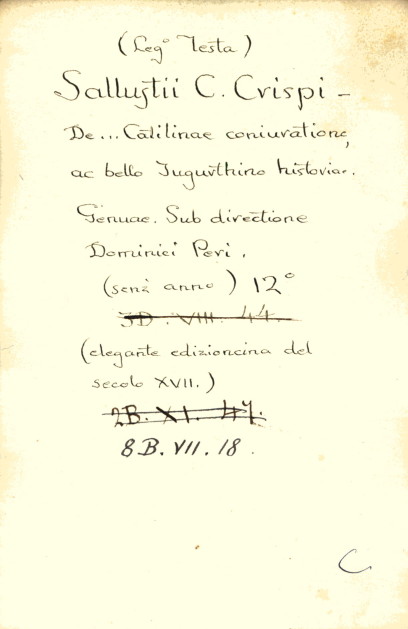 (Leg° Testa)
Sallustii C. Crispi -
De... Catilinae coniuratione,
ac bello Jugurthino historiae.
Genuae. Sub directione
Dominici Peri,
(senz' anno) 12°
3D. VIII. 44.
(elegante edizioncina del
secolo XVII.)
2B. XI. 47.
8B. VII. 18.
C